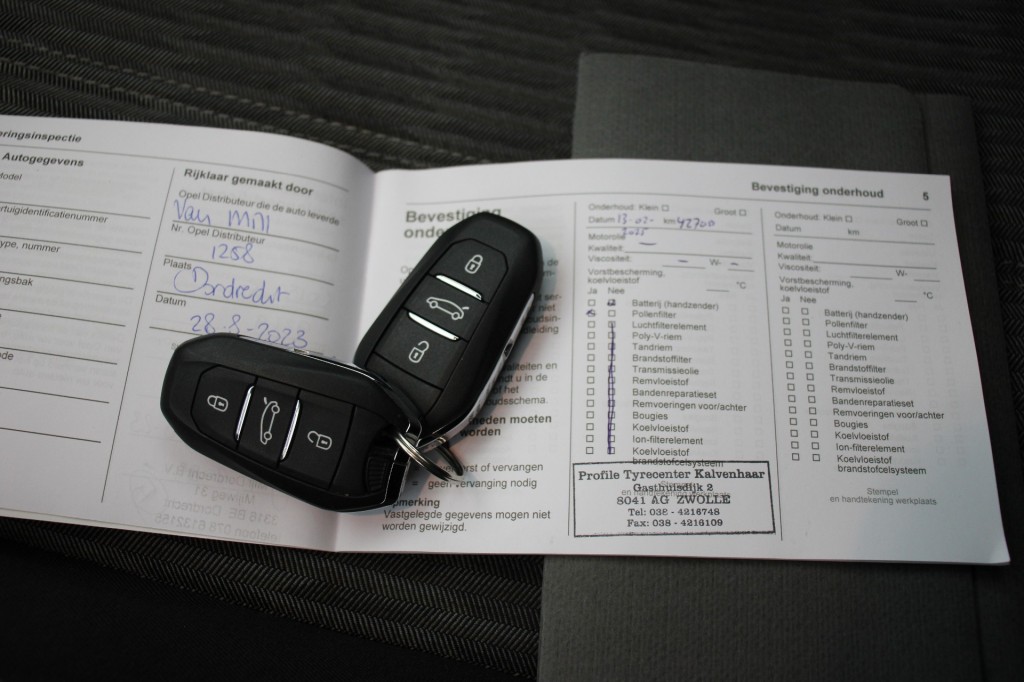 eringsinspectie
Autogegevens
odel
ertuigidentificatienummer
ype, nummer
ngsbak
ode
Rijklaar gemaakt door
Opel Distributeur die de auto leverde
Van Mill
Nr. Opel Distributeur
1258
Plaats
Dordrecht
Datum
28-8-2023
Bevestiging onderhoud 5
Bevestiging
onde
heden moeten
worden
erst of vervangen
= geen vervanging nodig
Opmerking
Vastgelegde gegevens mogen niet
worden gewijzigd.
Onderhoud: Klein Groot
Datum 13-02- km 42700
2025
Motorolie
Kwaliteit:
Viscositeit: W-
Vorstbescherming,
koelvloeistof °C
Ja Nee
Batterij (handzender)
Pollenfilter
Luchtfilterelement
Poly-V-riem
Tandriem
Brandstoffilter
Transmissieolie
Remvloeistof
Bandenreparatieset
Remvoeringen voor/achter
Bougies
Koelvloeistof
Ion-filterelement
Koelvloeistof
brandstofcelsysteem
Profile Tyrecenter Kalvenhaar
Gasthuisdijk 2
8041 AG ZWOLLE
Tel: 038 - 4216748
Fax: 038 - 4216109
Onderhoud: Klein Groot
Datum km
Motorolie
Kwaliteit:
Viscositeit: W-
Vorstbescherming,
koelvloeistof °C
Ja Nee
Batterij (handzender)
Pollenfilter
Luchtfilterelement
Poly-V-riem
Tandriem
Brandstoffilter
Transmissieolie
Remvloeistof
Bandenreparatieset
Remvoeringen voor/achter
Bougies
Koelvloeistof
Ion-filterelement
Koelvloeistof
brandstofcelsysteem
Stempel
en handtekening werkplaats